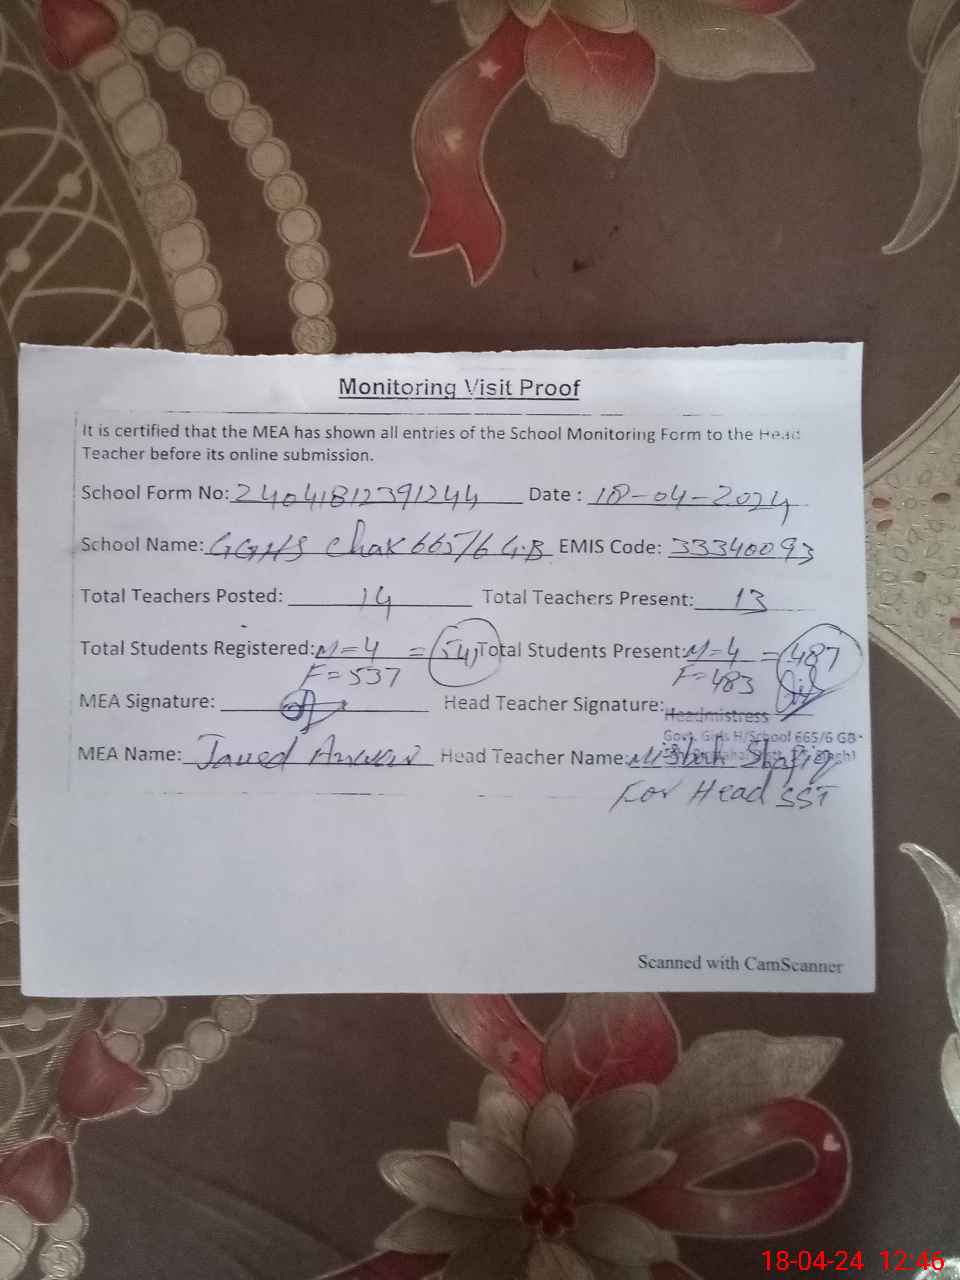 Monitoring Visit Proof
It is certified that the MEA has shown all entries of the School Monitoring Form to the Head
Teacher before its online submission.
School Form No: 24041812391244 Date : 18-04-2024
School Name: GGHS Chak 665/6 G.B EMIS Code: 33340093
Total Teachers Posted: 14 Total Teachers Present: 13
Total Students Registered: M=4 = 541 Total Students Present: M=4 = 487
F=537 F=483
MEA Signature: Head Teacher Signature:
Headmistress
Govt. Girls H/School 665/6 GB
MEA Name: Javed Anwar Head Teacher Name: Misbah Shafiq
For Head SST
Scanned with CamScanner
18-04-24 12:46